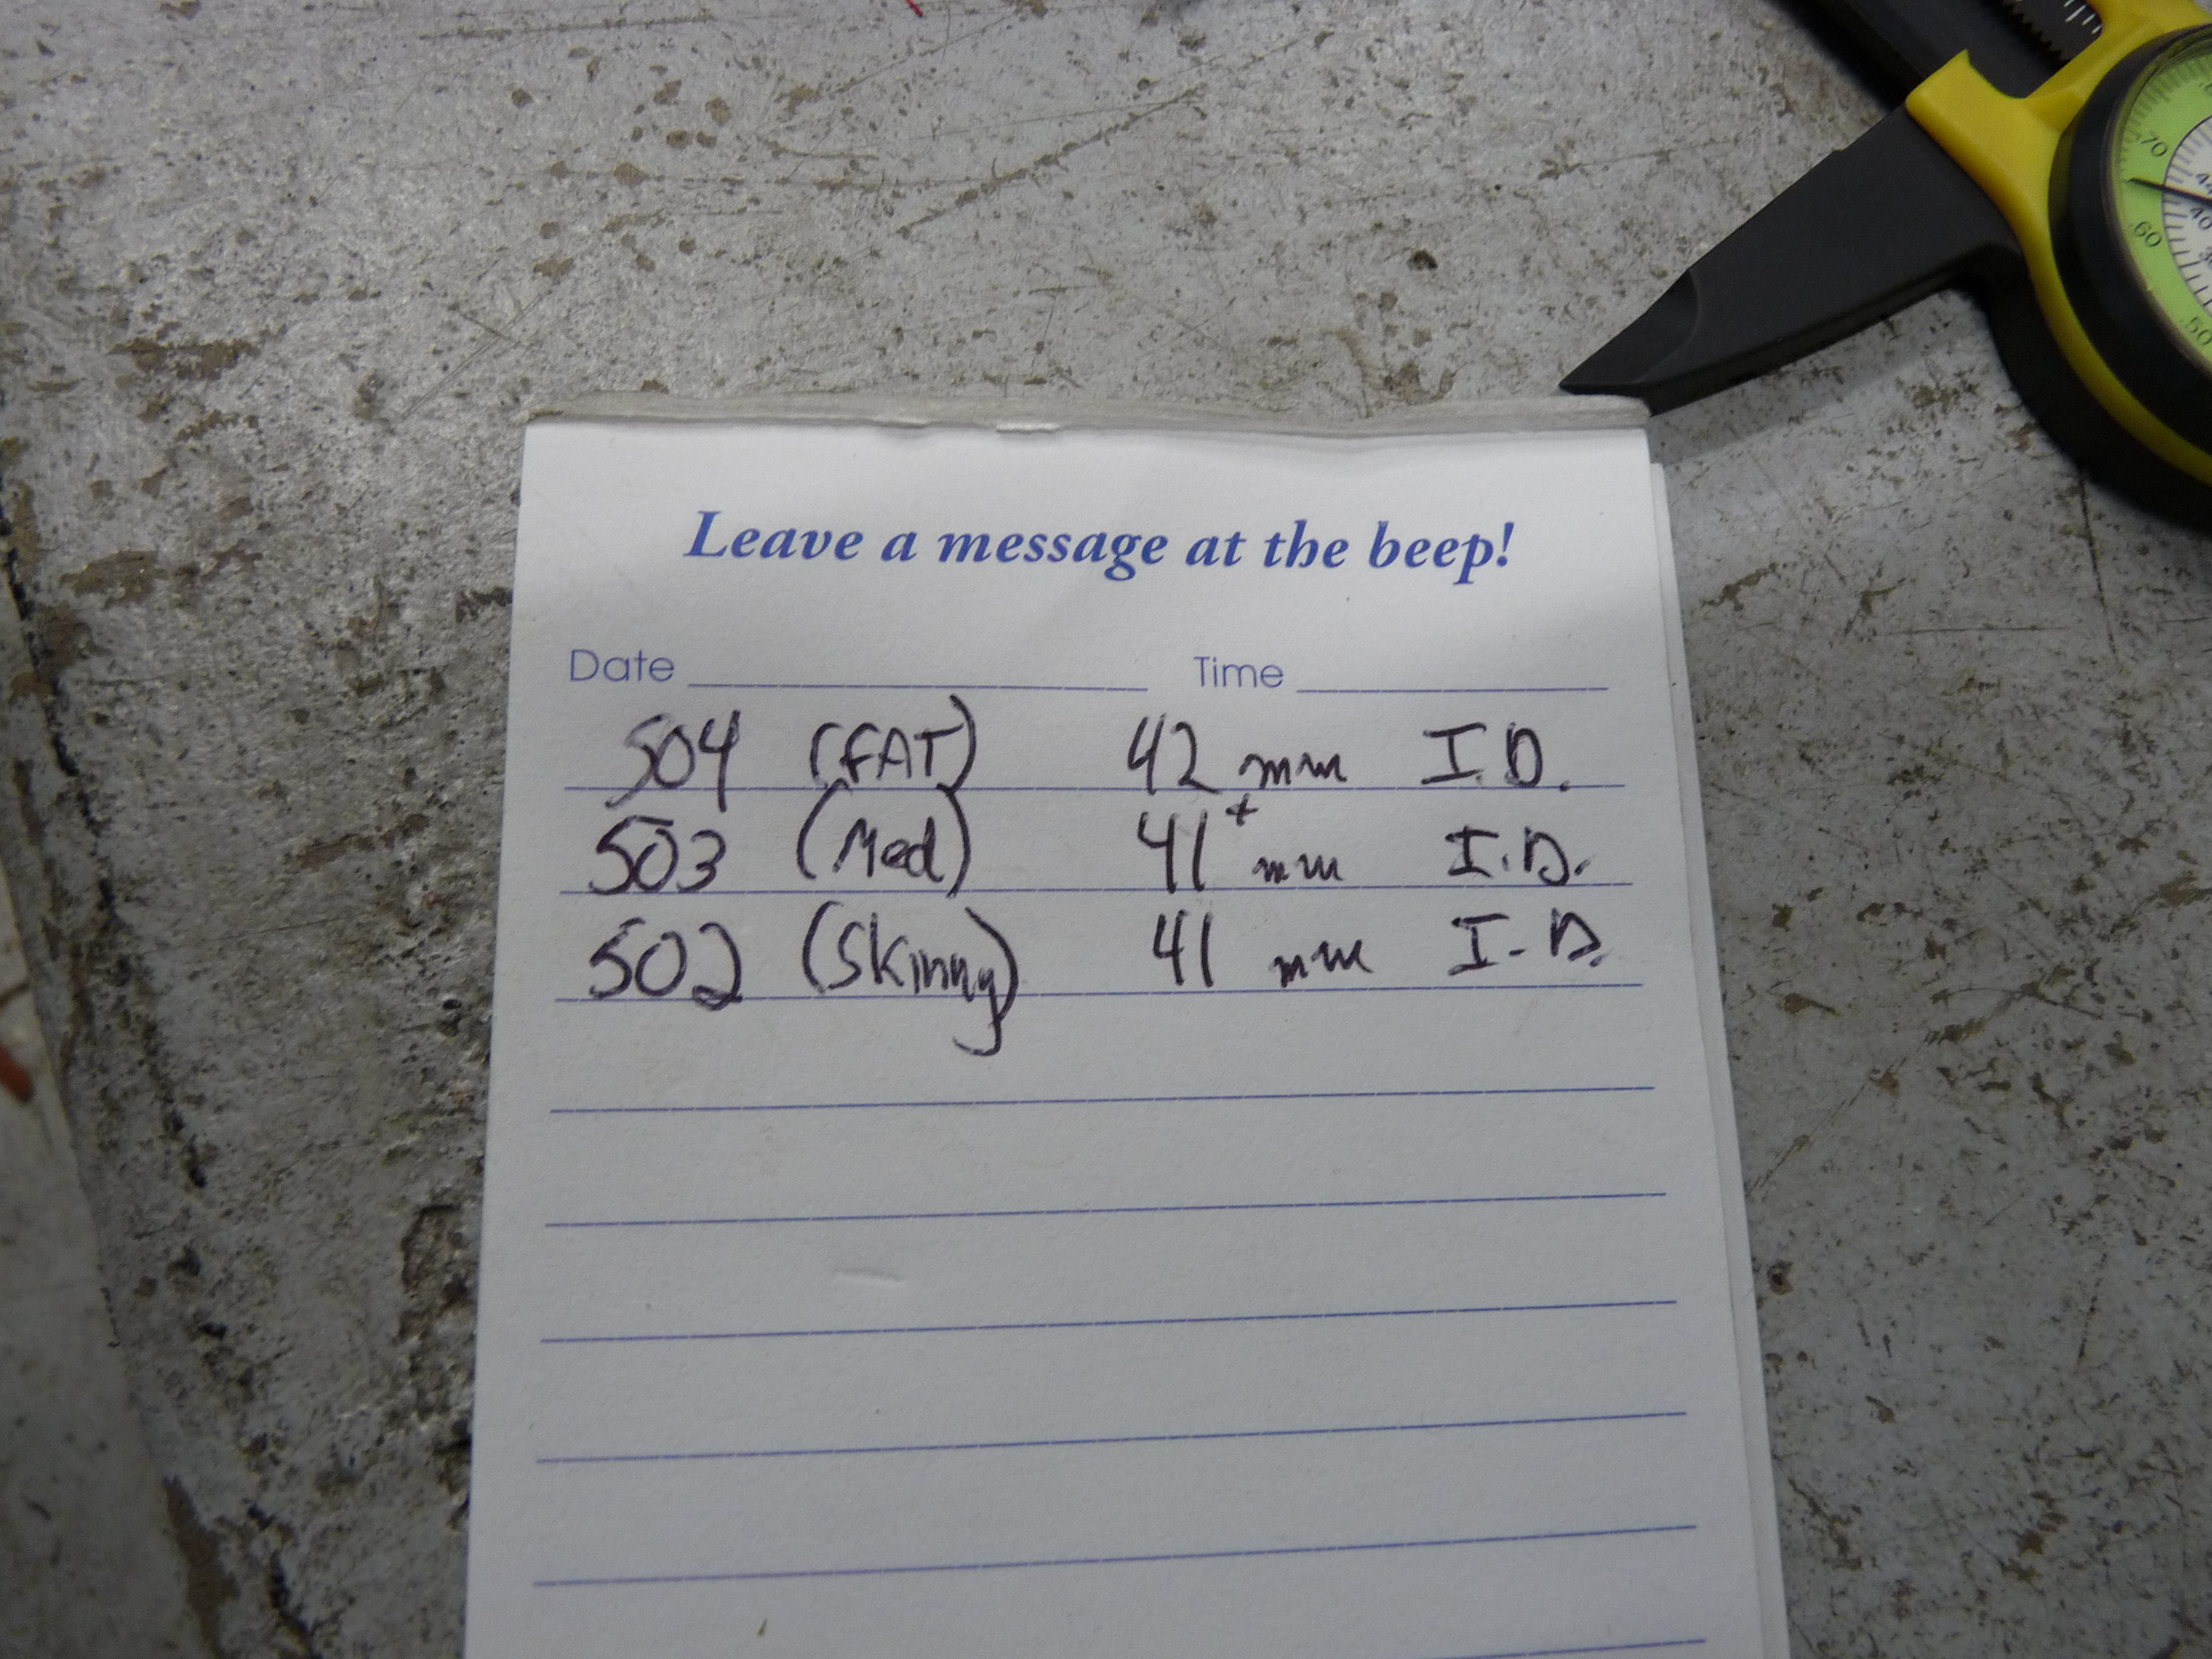 Leave a message at the beep!
Date Time
504 (FAT) 42 mm I.D.
503 (Med) 41+ mm I.D.
502 (Skinny) 41 mm I.D.
70
60
50
40